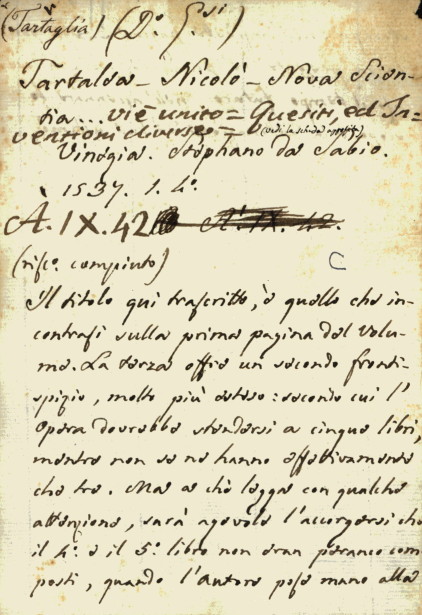 (Tartaglia) (D.º G.si)
Tartalea – Nicolò – Nova Scien-
tia... vi è unito = Quesiti, ed In=
ventioni diverse = (vedi la scheda apposita)
Vinegia. Stephano da Sabio.
1537. 1. 4.º
A. IX. 42
(risc.º compiuto) C
Il titolo qui trascritto, è quello che in-
contrasi sulla prima pagina del volu-
me. La terza offre un secondo fronti-
spizio, molto più esteso: secondo cui l'
Opera dovrebbe stendersi a cinque libri,
mentre non se ne hanno effettivamente
che tre. Ma a chi legga con qualche
attenzione, sarà agevole l'accorgersi che
il 4.º e il 5.º libro non eran peranco com
posti, quando l'Autore pose mano alla